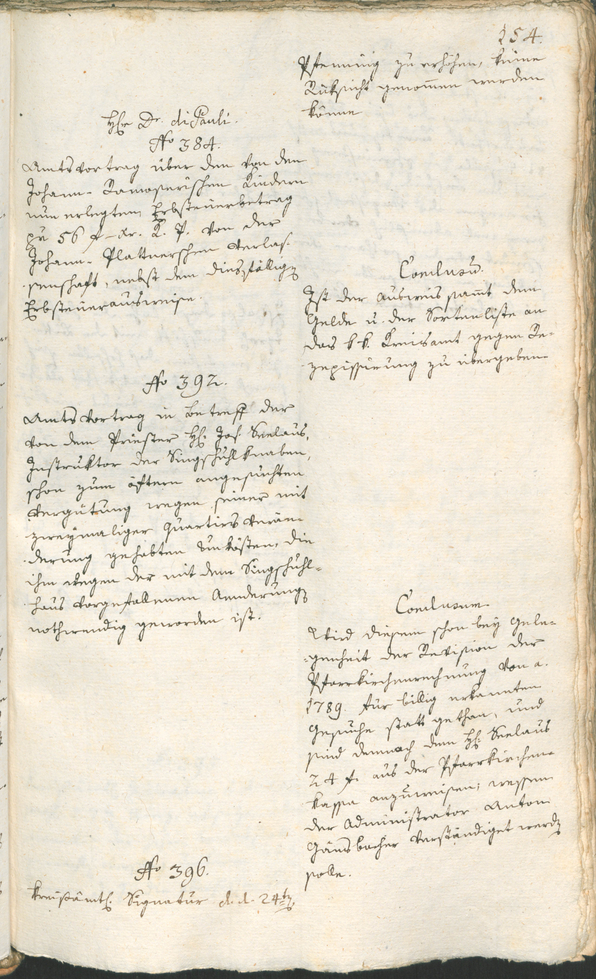 154.
Pfenning zu erhöhen, keine
Rüksicht genommen werden
könne
H. Dr. di Pauli.
No 384.
Amtsvortrag über den von den
Johann- Ramoserischen Kindern
nun erlegten Erbsteuerbetrag
pr 56 f – xr. R. P. von der
Johann- Plattnerschen Verlas-
senschaft, nebst dem diesfällig
Erbsteuerausweise.
Conclusum.
Ist der Ausweis samt dem
Gelde u. der Sortenliste an
das k. k. Kreisamt gegen Re-
zepissirung zu übergeben
No 392.
Amtsvortrag in Betreff der
von dem Priester H. Jos. Seelaus,
Instruktor der Singschuhlknaben,
schon zum öftern angesuchten
Vergütung wegen seiner mit
zweymaliger Quartiersverän-
derung gehabten Unkosten, die
ihm wegen der mit dem Singschuhl-
haus vorgefallenen Aenderung
nothwendig geworden ist.
Conclusum.
Wird diesem schon bey Gele-
genheit der Revision der
Pfarrkirchenrechnung von a.
1789. für billig erkannten
Gesuche statt gethan, und
sind demnach dem H. Seelaus
24 f. aus der Pfarrkirchen-
kassa anzuweisen; wessen
der Administrator Anton
Gänsbacher verständiget werd
solle.
No 396.
Kreisämtl. Signatur d. d. 24t